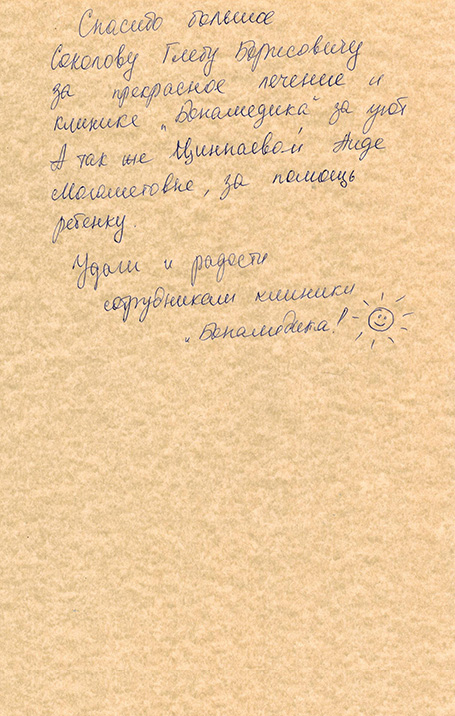 Спасибо большое
Соколову Глебу Борисовичу
за прекрасное лечение и
клинике „Бонамедика“ за уют
А так же Аиде
Магометовне, за помощь
ребенку.
Удачи и радости
сотрудникам клиники
„Бонамедика!